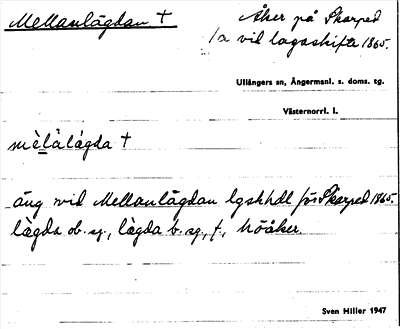 Mellanlägdan † Åker på Skarped
/a vid lagaskifte 1865.
Ullångers sn, Ångermanl. s. doms. tg.
Västernorrl. l.
mèlàlágda †
äng vid Mellanlägdan lgskhdl för Skarped 1865.
làgda ob. sg., làgda b. sg., f., höåker.
Sven Hiller 1947